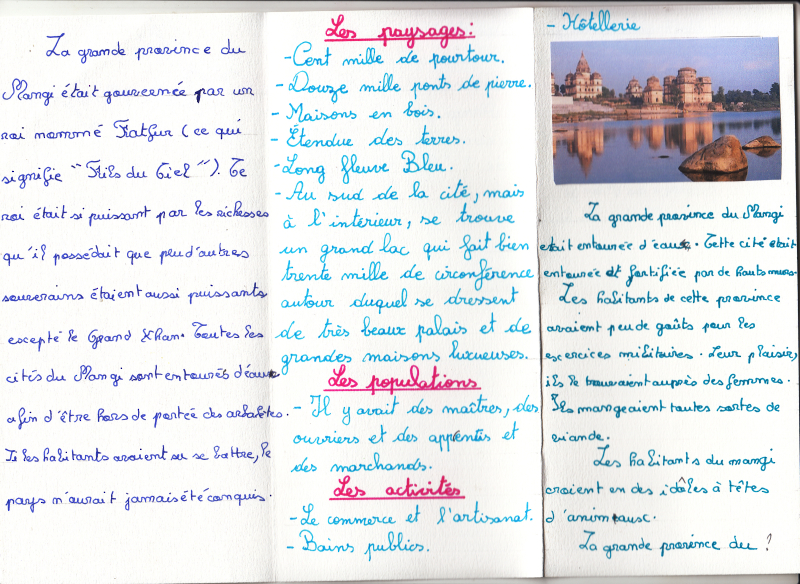 La grande province du
Mangi était gouvernée par un
roi nommé Fatfur (ce qui
signifie "Fils du Ciel"). Ce
roi était si puissant par les richesses
qu'il possédait que peu d'autres
souverains étaient aussi puissants
excepté le Grand Khan. Toutes les
cités du Mangi sont entourés d'eau
afin d'être hors de portée des arbalètes.
Si les habitants avaient su se battre, le
pays n'aurait jamais été conquis.
Les paysages:
- Cent mille de pourtour.
- Douze mille ponts de pierre.
- Maisons en bois.
- Étendue des terres.
- Long fleuve Bleu.
- Au sud de la cité, mais
à l'intérieur, se trouve
un grand lac qui fait bien
trente mille de circonférence
autour duquel se dressent
de très beaux palais et de
grandes maisons luxueuses.
Les populations
- Il y avait des maîtres, des
ouvriers et des apprentis et
des marchands.
Les activités
- Le commerce et l'artisanat.
- Bains publics.
- Hôtellerie
La grande province du Mangi
était entourée d'eau. Cette cité était
entourée et fortifiée par de hauts murs.
Les habitants de cette province
avaient peu de goûts pour les
exercices militaires. Leur plaisir,
ils le trouvaient auprès des femmes.
Ils mangeaient toutes sortes de
viande.
Les habitants du mangi
croient en des idôles à têtes
d'animaux.
La grande province du ?